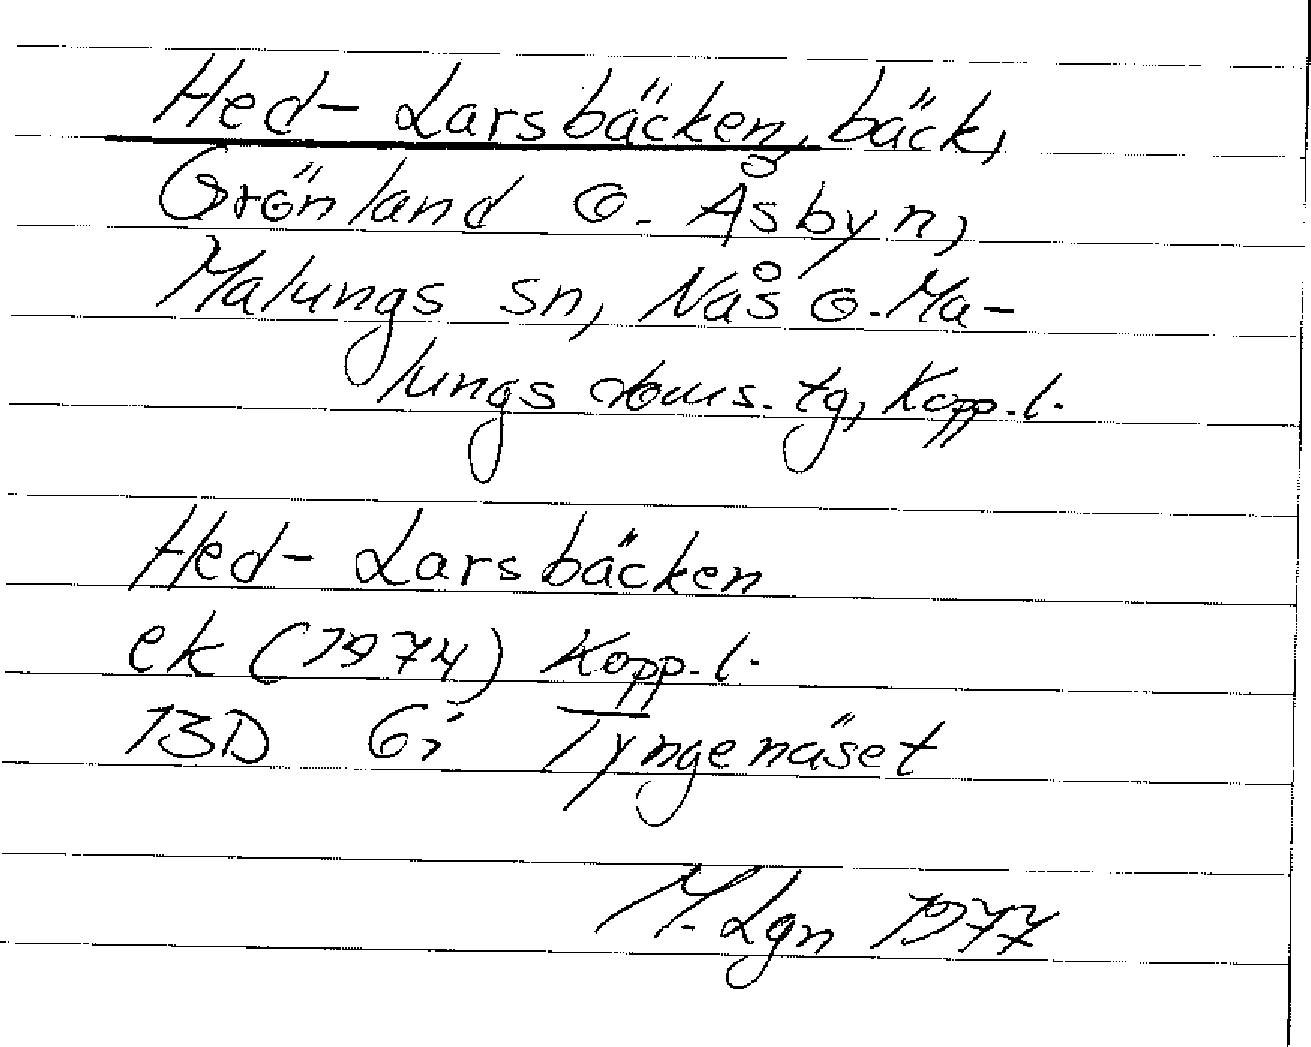 Hed-Larsbäcken, bäck,
Grönland o. Åsbyn,
Malungs sn, Nås o. Ma-
lungs doms. tg, Kopp. l.
Hed-Larsbäcken
ek (1974) Kopp. l.
13D 6i Tyngenäset
M. Lgn 1977